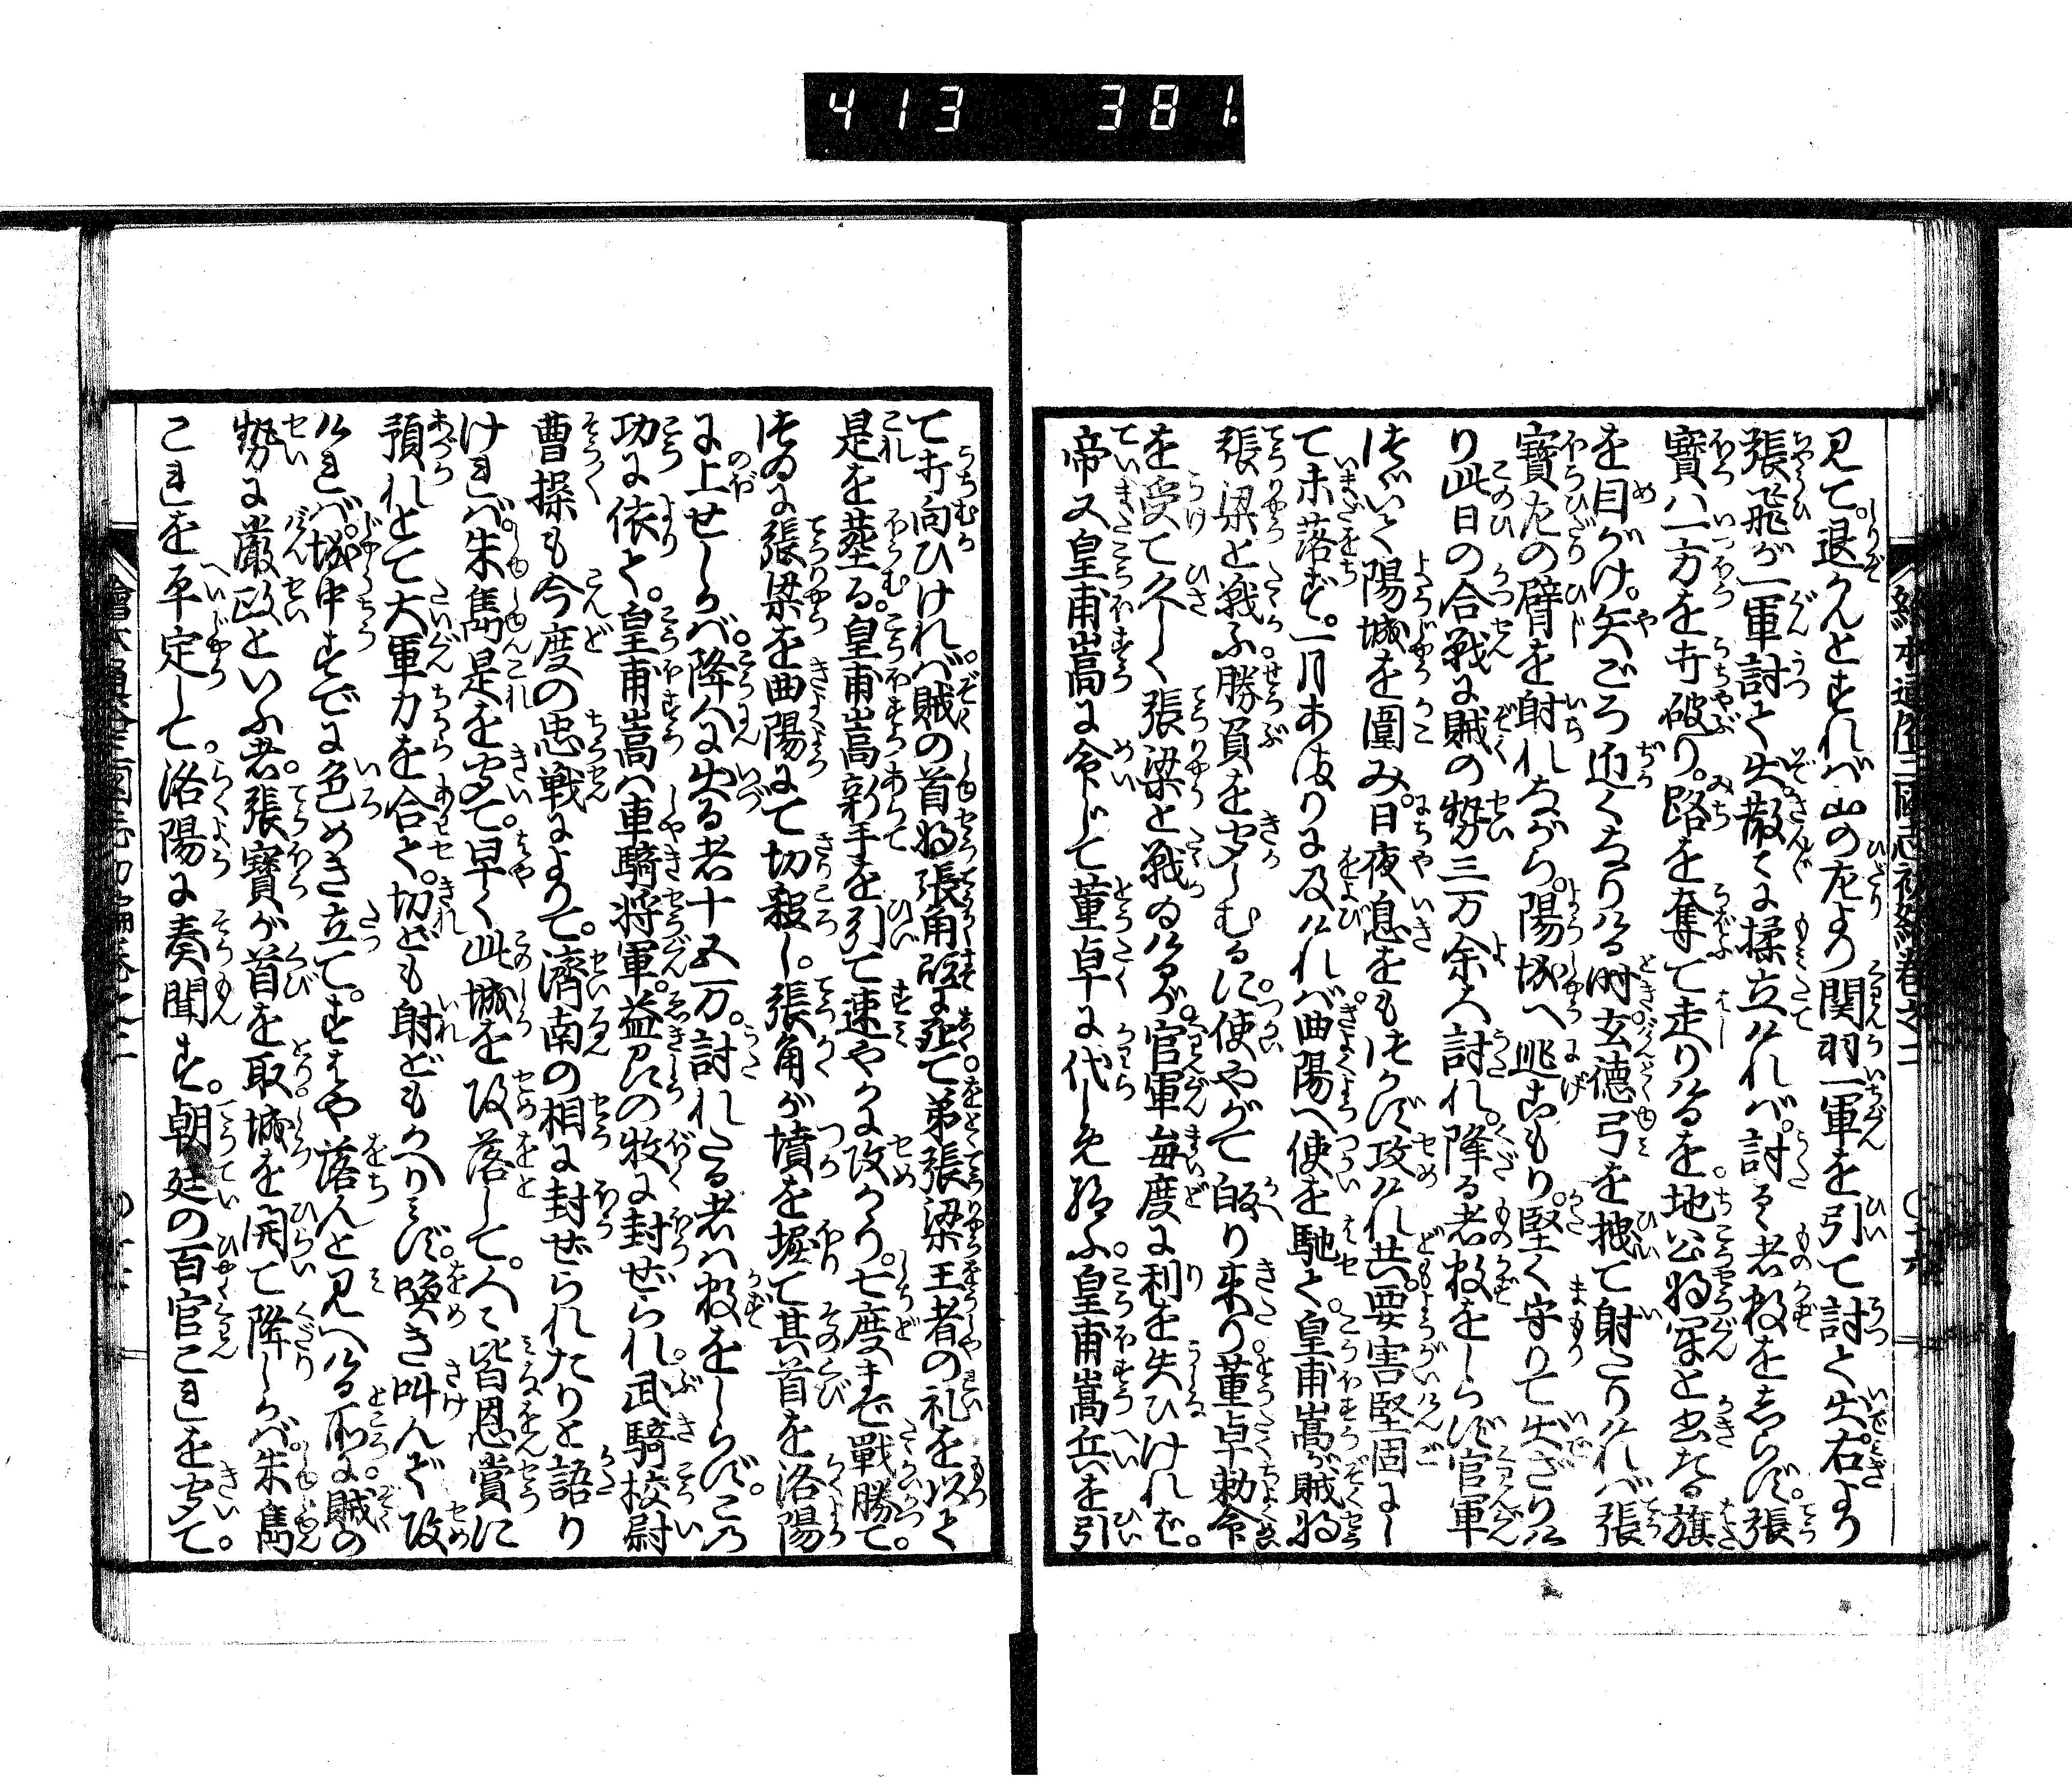 413 381.
見て。退かんとすれバ山の左より関羽一軍を引て討て出。右より
張飛が一軍討て出散々に揉立けれバ。討るゝ者数をしらず。張
寳ハ一方を打破り。路を奪て走りけるを。地公将軍と書たる旗
を目がけ。矢ごろ近くなりける時。玄徳弓を拽て射たりけれバ張
寳左の臂を射れながら。陽城へ逃こもり。堅く守りて出ざりけ
り此日の合戦に賊の勢三万余人討れ。降る者数をしらず官軍
つゞいて陽城を圍み。日夜息をもつがず攻けれ共。要害堅固にし
て未落ず。一月あまりに及けれバ曲陽へ使を馳て。皇甫嵩が賊将
張梁と戦ふ。勝負を聞しむるに。使やがて皈り来り。董卓勅命
を受て久しく張梁と戦ゐけるが。官軍毎度に利を失ひけれバ。
帝又皇甫嵩に命じて董卓に代らしめ給ふ。皇甫嵩兵を引
て打向ひけれバ。賊の首将張角既に死して。弟張梁王者の礼を以て
是を葬る。皇甫嵩新手を引て速やかに攻かり。七度まで戰勝て。
つゐに張梁を曲陽にて切殺し。張角が墳を堀て其首を洛陽
に上せしかバ。降人に出る者十五万。討れたる者ハ数をしらず。この
功に依て。皇甫嵩ハ車騎将軍。益州の牧に封ぜられ。武騎校尉
曹操も今度の忠戦によりて。濟南の相に封ぜられたりと語り
けれバ。朱雋是を聞て。早く此城を攻落して。人々皆恩賞に
預れとて大軍力を合て。切ども射どもかへりみず。喚き叫んで攻
けれバ。城中すでに色めき立て。すはや落んと見へける所に。賊の
勢に嚴政といふ者。張寳が首を取。城を開て降しかバ。朱雋
これを平定して。洛陽に奏聞す。朝廷の百官これを聞て。